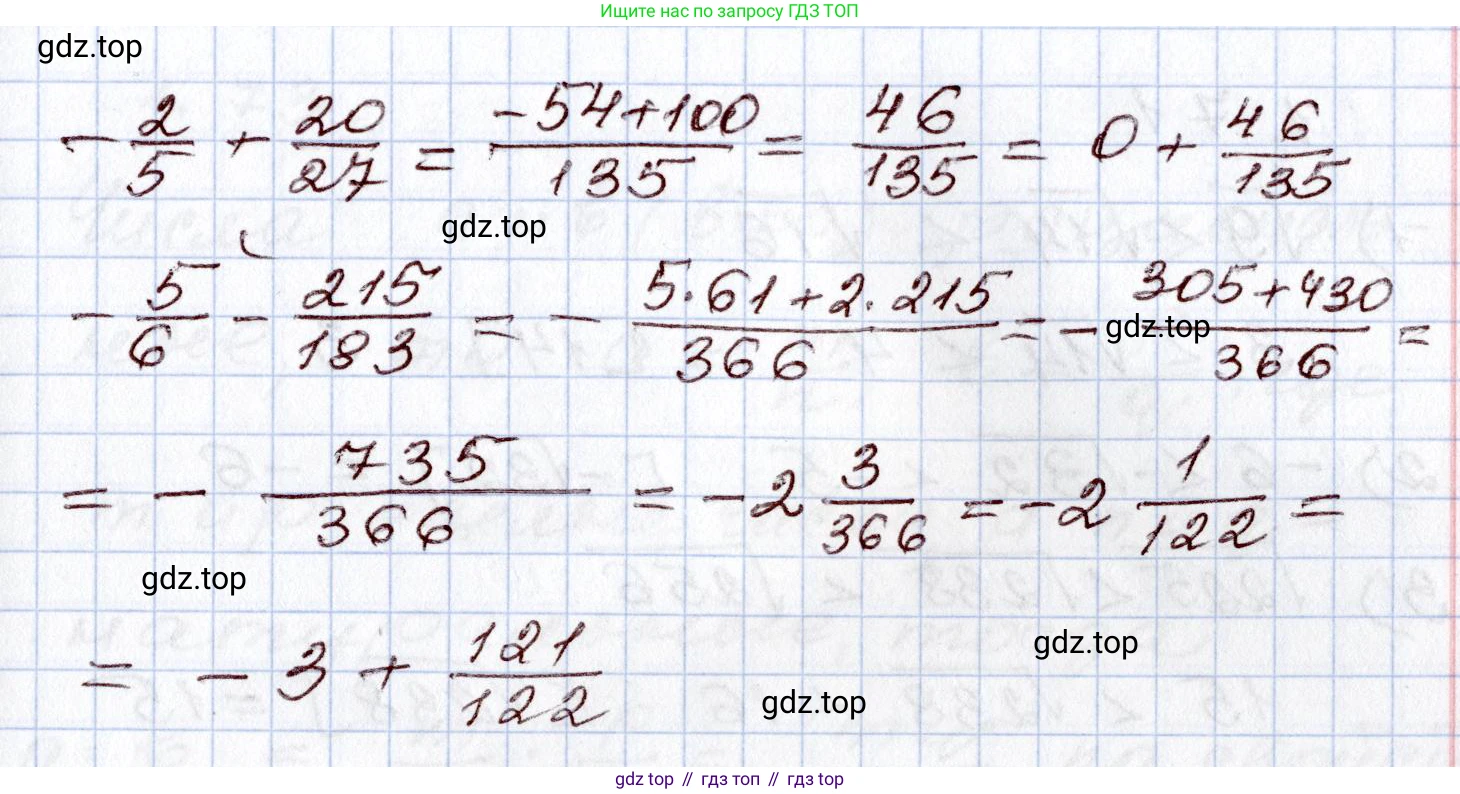 Ищите нас по запросу ГДЗ ТОП
gdz.top
-2/5 + 20/27 = (-54+100)/135 = 46/135 = 0 + 46/135
gdz.top
-5/6 - 215/183 = -(5·61+2·215)/366 = -(305+430)/366 =
gdz.top
= -735/366 = -2 3/366 = -2 1/122 =
gdz.top
= -3 + 121/122
gdz.top
gdz.top
gdz top // гдз топ // gdz top